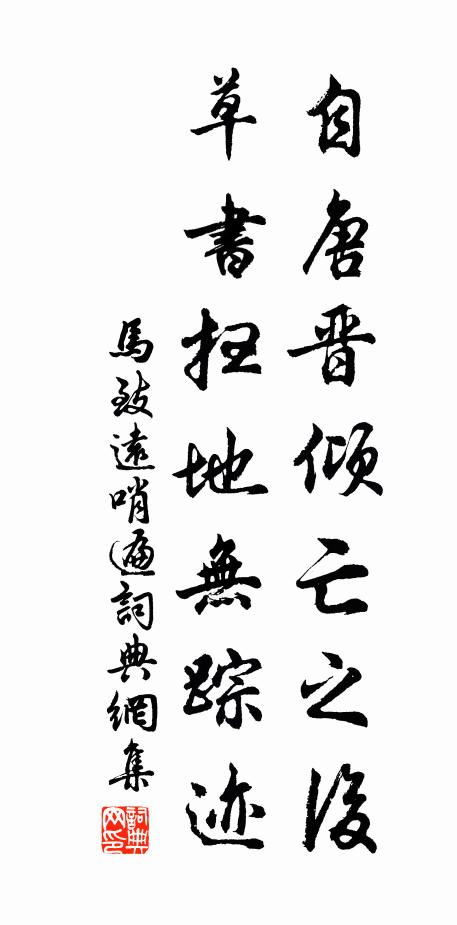 自唐晋傾亡之後
草書扫地無踪迹
馬致遠哨遍詞典網集
詞典网印